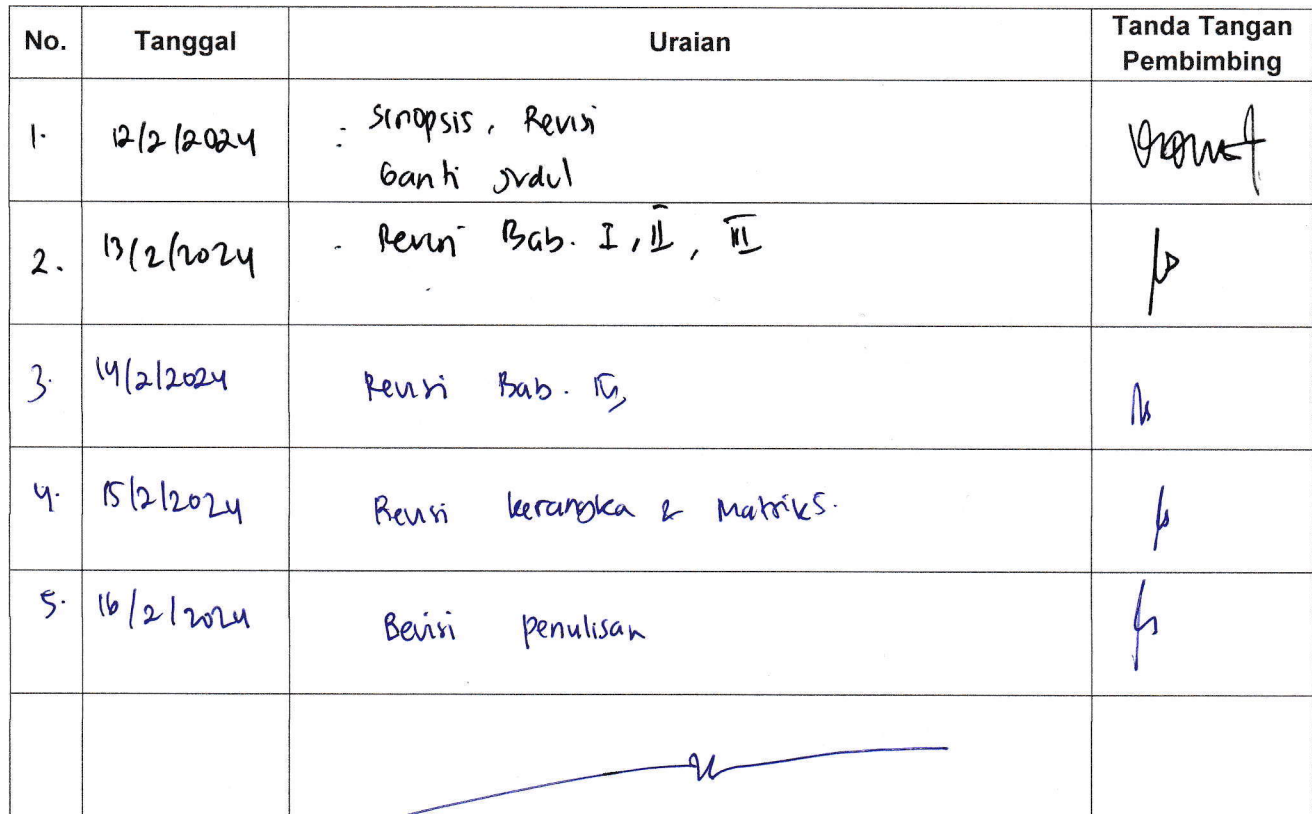 No. Tanggal Uraian Tanda Tangan Pembimbing
1. 12/2/2024 : Sinopsis, Revisi
Ganti Judul
2. 13/2/2024 - Revisi Bab. I, II, III
3. 14/2/2024 Revisi Bab. IV,
4. 15/2/2024 Revisi kerangka & Matriks.
5. 16/2/2024 Revisi penulisan